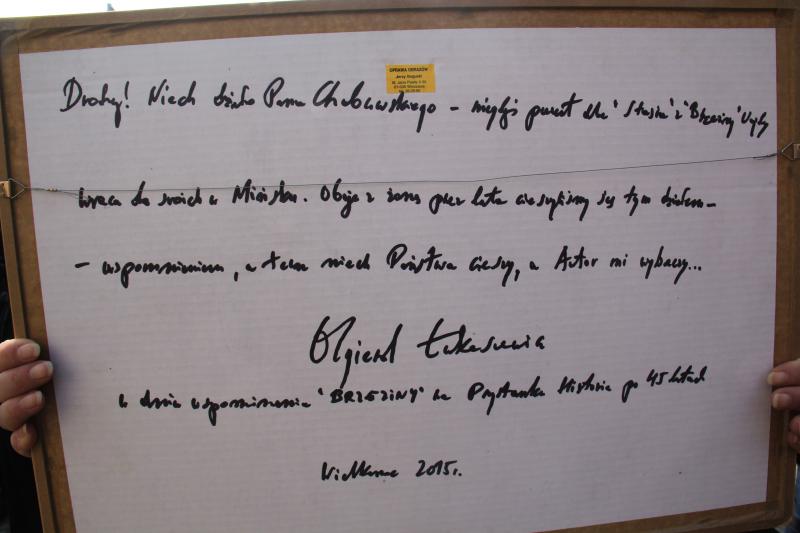 OPRAWA OBRAZÓW
Jerzy
Drodzy! Niech dzieło Pana – niegdyś prezent dla "Stasia" z "Brzeziny" Wajdy
wraca do swoich w. Oboje z żoną przez lata cieszyliśmy się tym dziełem –
– wspomnieniem, a teraz niech Państwa cieszy, a Autor mi wybaczy...
Olgierd Łukaszewicz
w dniu wspomnienia "BRZEZINY" na Przystanku Historia po 45 latach
2015r.